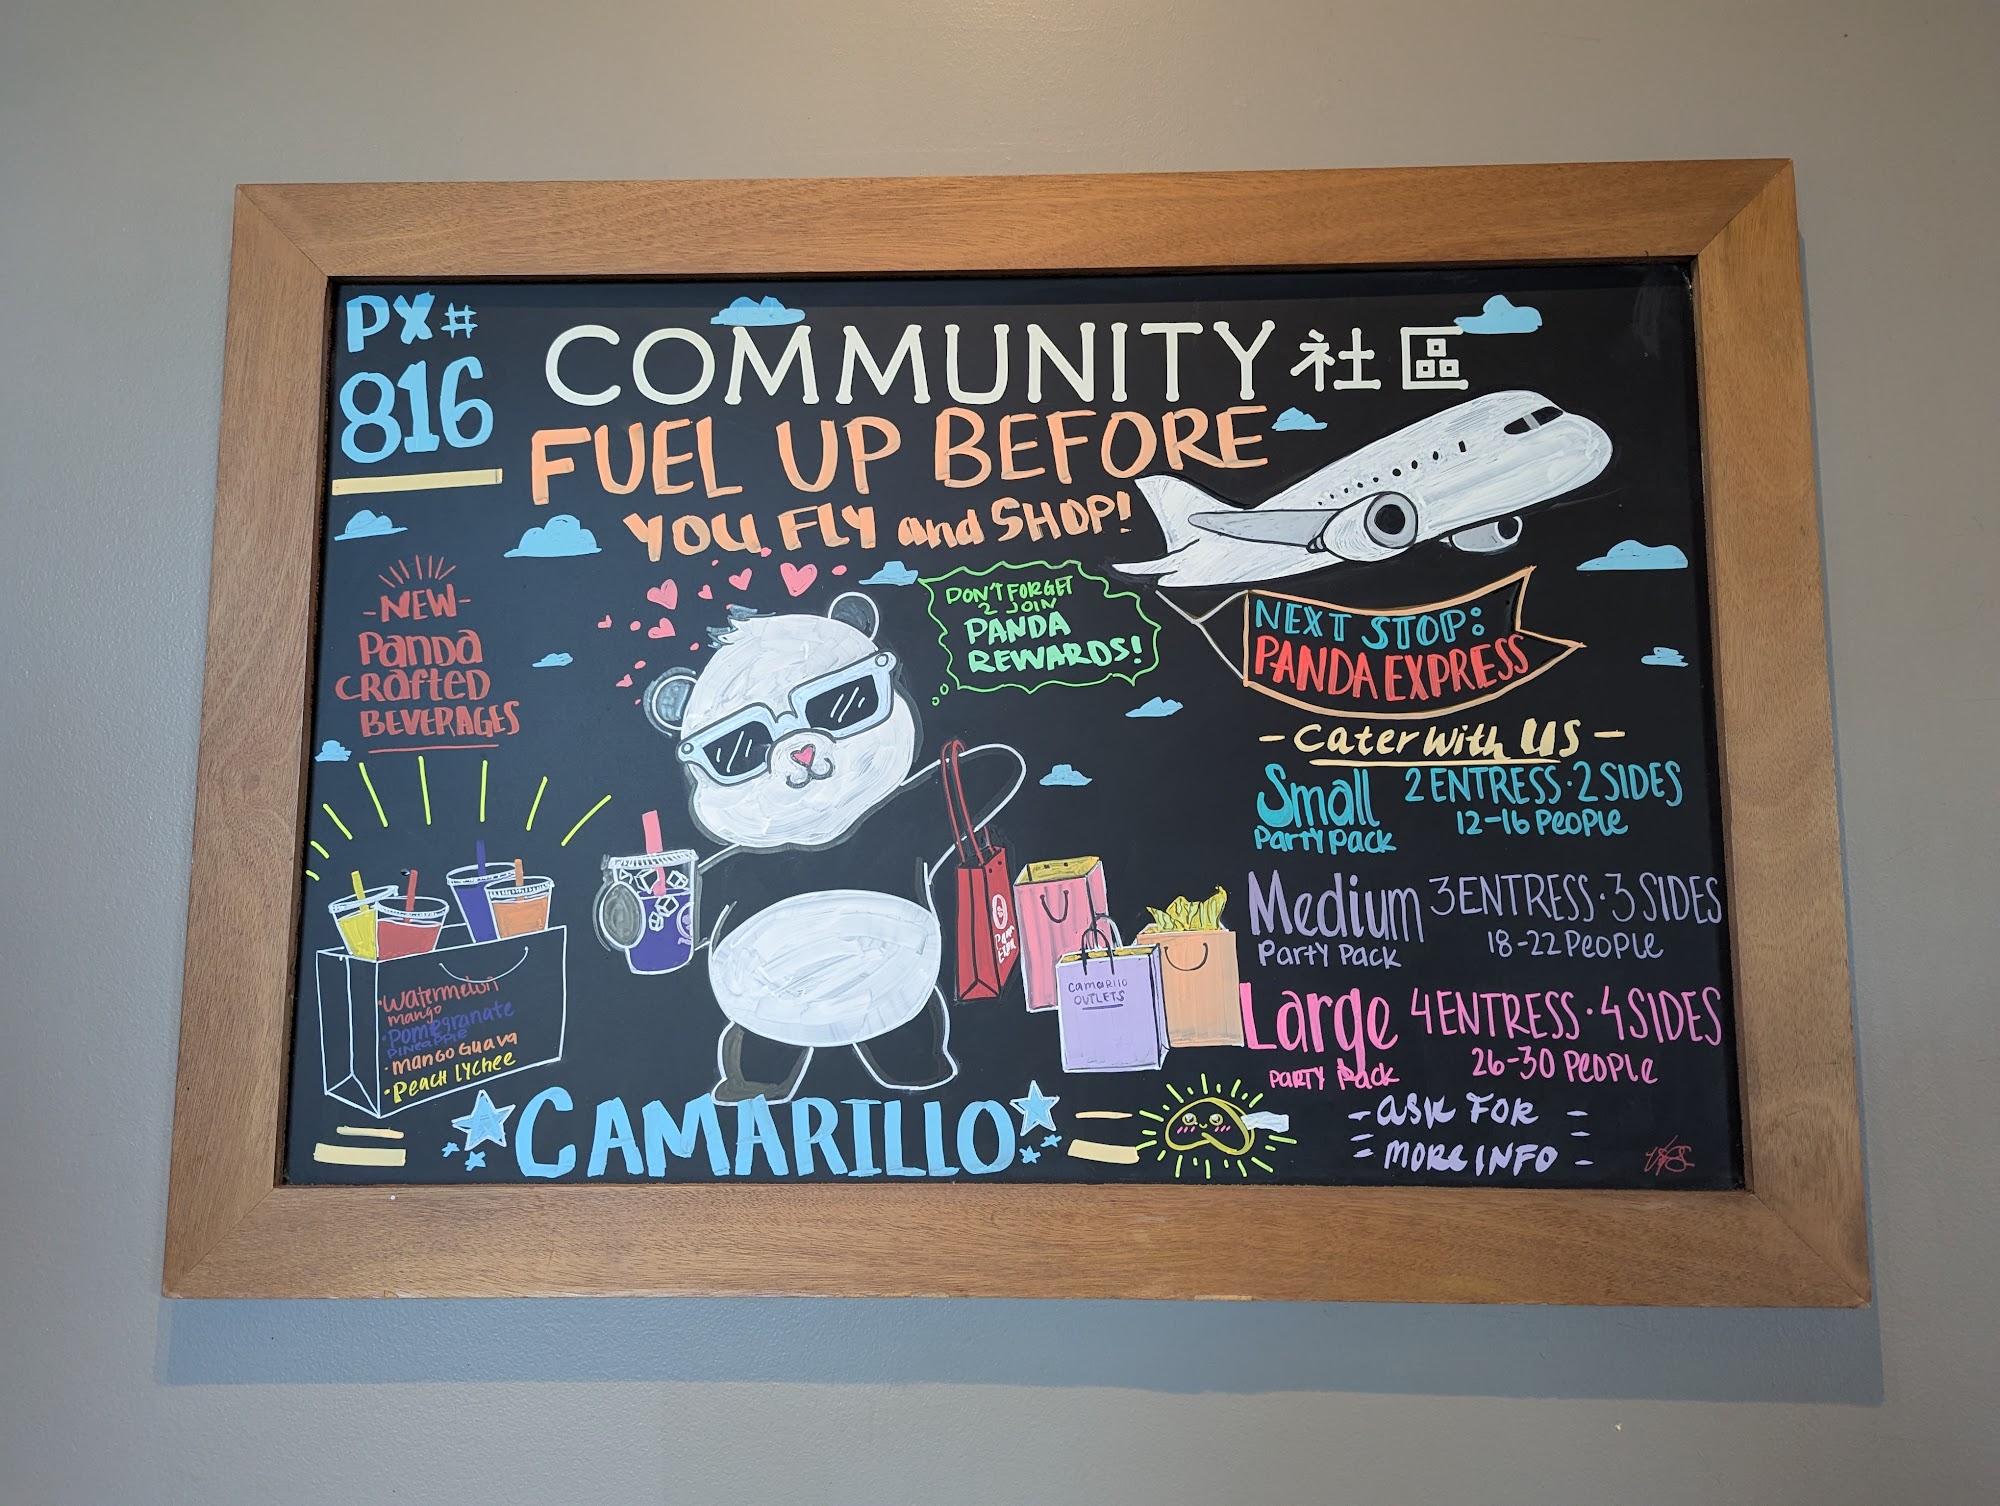 PX#
816
COMMUNITY 社區
FUEL UP BEFORE
YOU FLY and SHOP!
-NEW-
Panda
CRafted
BEVERAGES
DON'T FORGET
2 JOIN
PANDA
REWARDS!
NEXT STOP:
PANDA EXPRESS
- Cater With US -
Small
Party Pack
2 ENTRESS · 2 SIDES
12-16 People
Medium
Party Pack
3 ENTRESS · 3 SIDES
18-22 People
Large
Party Pack
4 ENTRESS · 4 SIDES
26-30 People
- ASK FOR -
MORE INFO
·Watermelon
mango
·Pomegranate
pineapple
·mango Guava
·Peach lychee
camarillo
OUTLETS
CAMARILLO